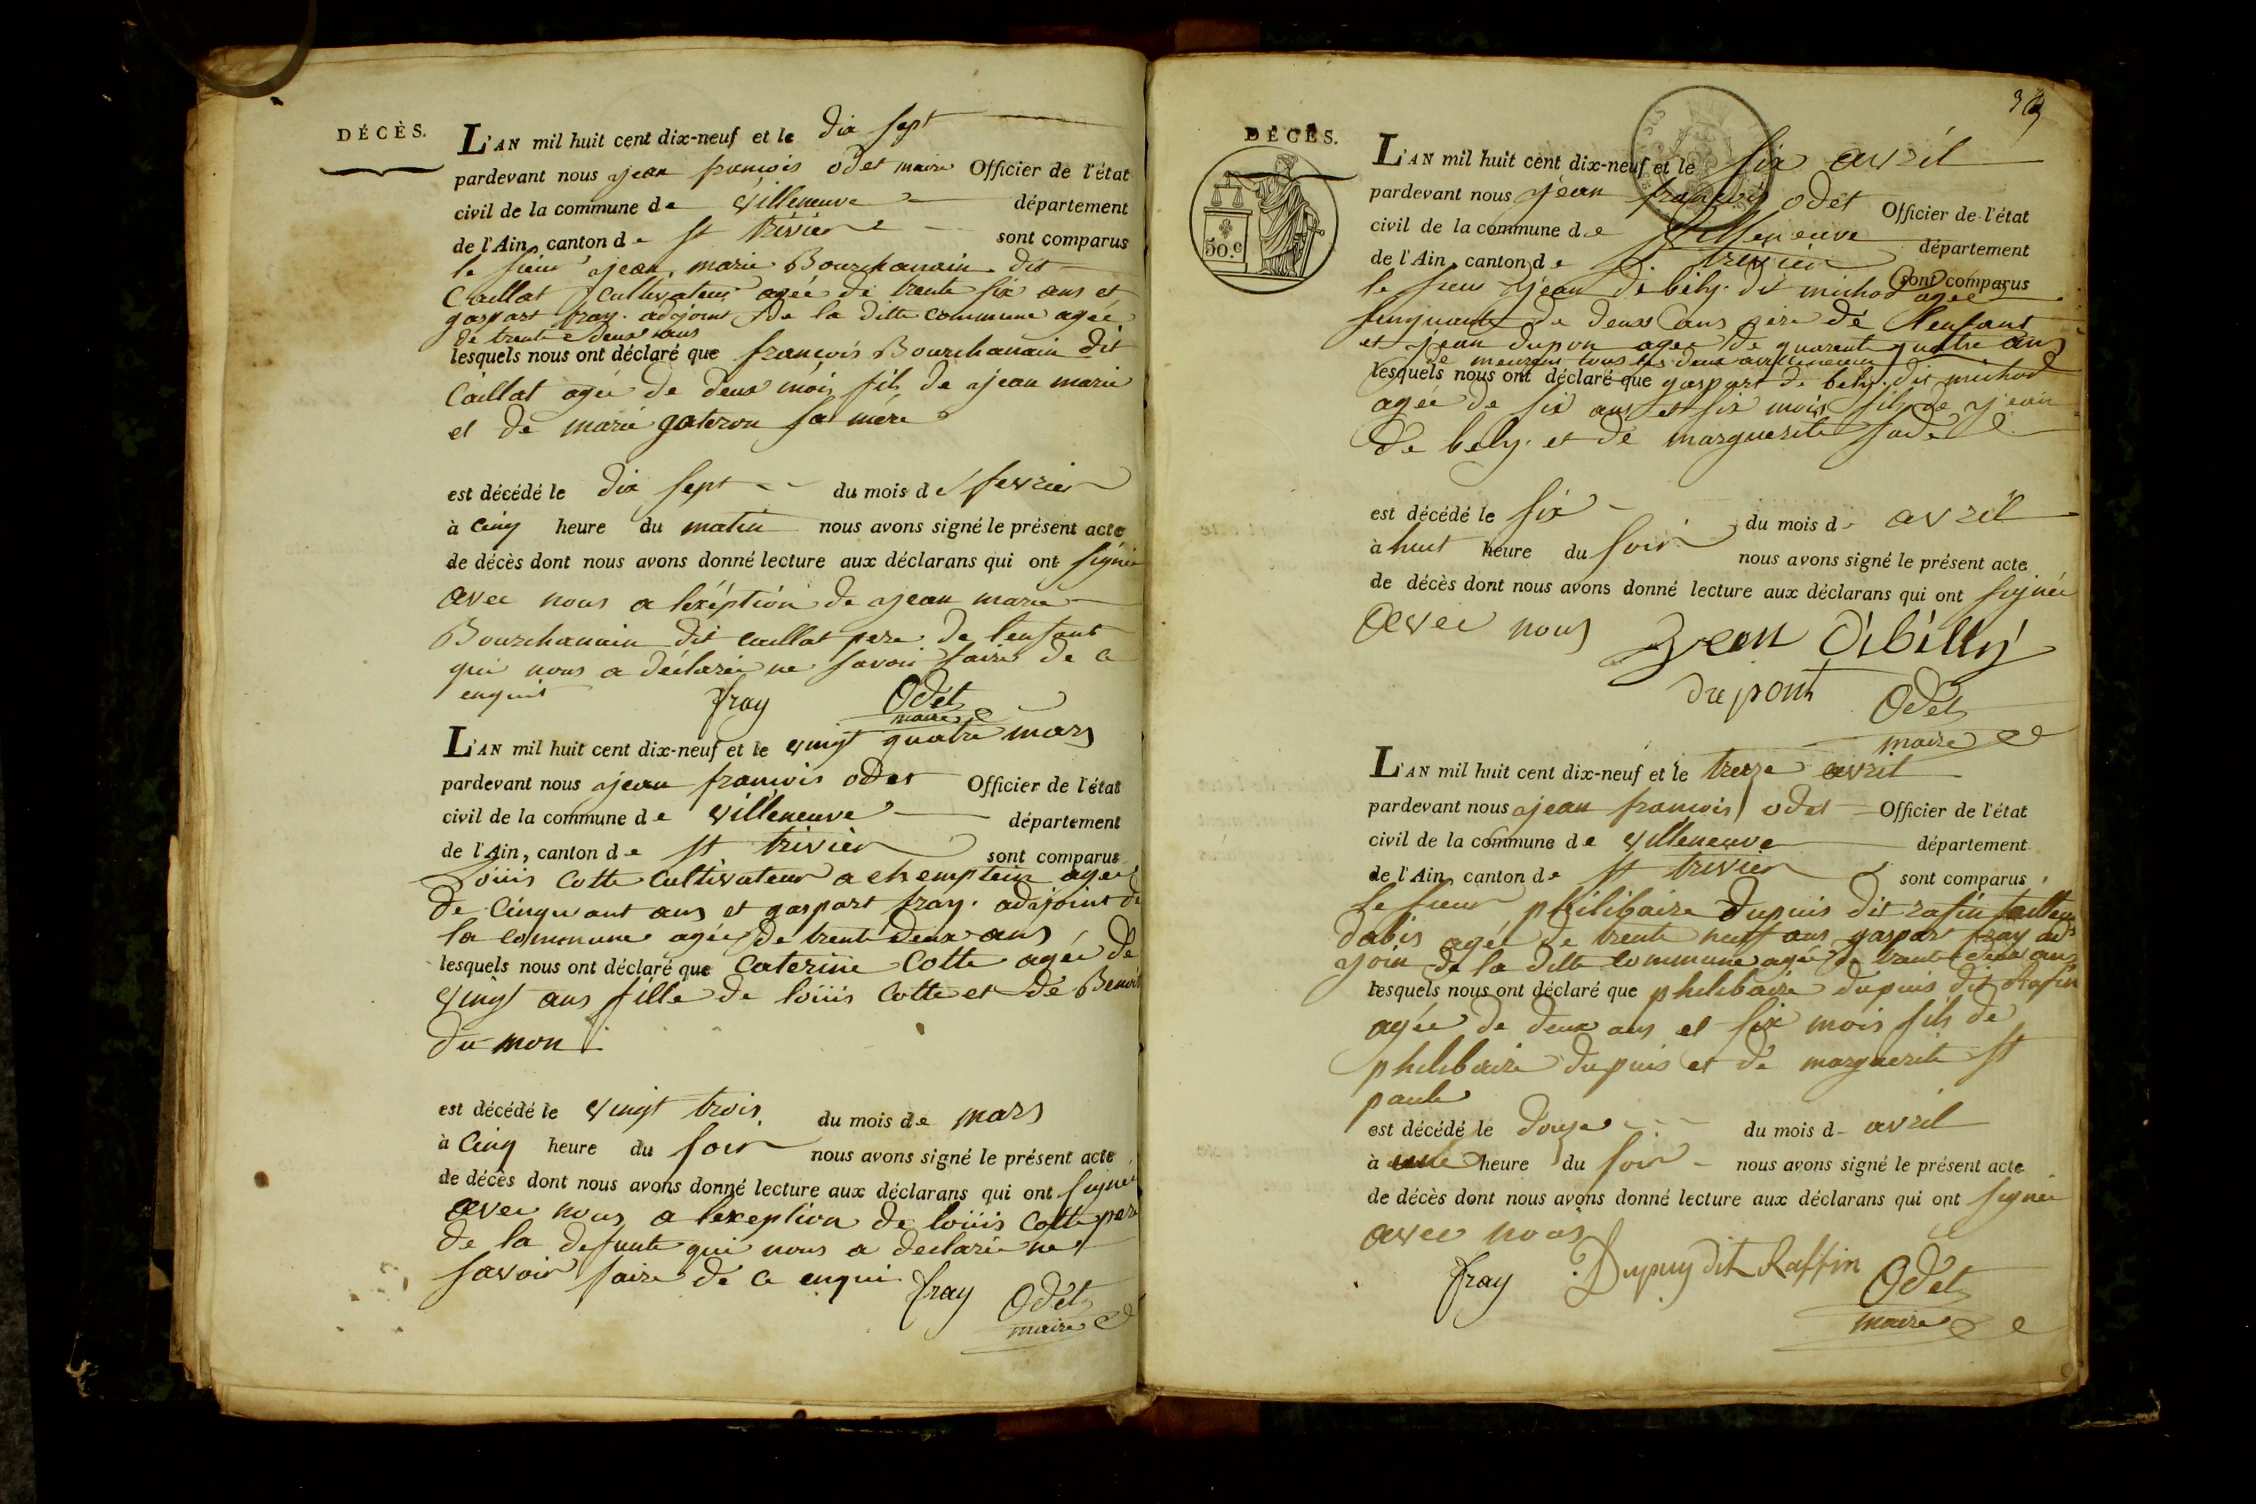 DÉCÈS.
L'AN mil huit cent dix-neuf et le dix sept
pardevant nous jean francois odet maire Officier de l'état
civil de la commune de villeneuve département
de l'Ain, canton de st trivier sont comparus
le sieur jean marie Bourchanain dit
Caillat cultivateur agée de trente six ans et
gaspart fray adjoint de la ditte commune agée
de trente deux ans
lesquels nous ont déclaré que francois Bourchanain dit
Caillat agée de deux mois fils de jean marie
et de marie gateron sa mère
est décédé le dix sept du mois de fevrier
à cinq heure du matin nous avons signé le présent acte
de décès dont nous avons donné lecture aux déclarans qui ont signée
avec nous a lexéption de jean marie
Bourchanain dit caillat pere de l'enfant
qui nous a déclarée ne savoir faire de ce
enquit
fray Odet
maire
L'AN mil huit cent dix-neuf et le vingt quatre mars
pardevant nous jean francois odet Officier de l'état
civil de la commune de villeneuve département
de l'Ain, canton de st trivier sont comparus
loüis Cotte Cultivateur a chemptein agée
de Cinquant ans et gaspart fray adjoint de
la commune agée de trente deux ans
lesquels nous ont déclaré que Caterine Cotte agée de
vingt ans fille de loüis Cotte et de Benoit
du mon
est décédé le vingt trois du mois de mars
à Cinq heure du soir nous avons signé le présent acte
de décès dont nous avons donné lecture aux déclarans qui ont signée
avec nous a lexeption de loüis Cotte pere
de la defunte qui nous a declarée ne
savoir faire de ce enqui
fray Odet
maire
39
DÉCÈS.
50.c
L'AN mil huit cent dix-neuf et le six avril
pardevant nous jean francois odet Officier de l'état
civil de la commune de Villeneuve département
de l'Ain, canton de st trivier sont comparus
le sieur jean de bely dit michod agée
sinquante de deux ans pere de l'enfant
et jean dupon agee de quarente quatre ans
de meurant tous les deux a villeneuve
lesquels nous ont déclaré que gaspart de bely dit michod
agee de six ans et six mois fils de jean
de bely et de marguerite fade
est décédé le six du mois d avril
à huit heure du soir nous avons signé le présent acte
de décès dont nous avons donné lecture aux déclarans qui ont signée
avec nous jean dibilly
dupont Odet
maire
L'AN mil huit cent dix-neuf et le treize avril
pardevant nous jean francois odet Officier de l'état
civil de la commune de villeneuve département
de l'Ain, canton de st trivier sont comparus
le sieur philibaire dupuis dit rafin tailleur
dabis agée de trente neuf ans gaspart fray ad
join de la ditte commune agée de trente deux ans
lesquels nous ont déclaré que philibaire dupuis dit Rafin
agée de deux ans et six mois fils de
philibaire dupuis et de marguerite st
paule
est décédé le douze du mois d avril
à une heure du soir nous avons signé le présent acte
de décès dont nous avons donné lecture aux déclarans qui ont signée
avec nous
fray Dupuy dit Raffin Odet
maire